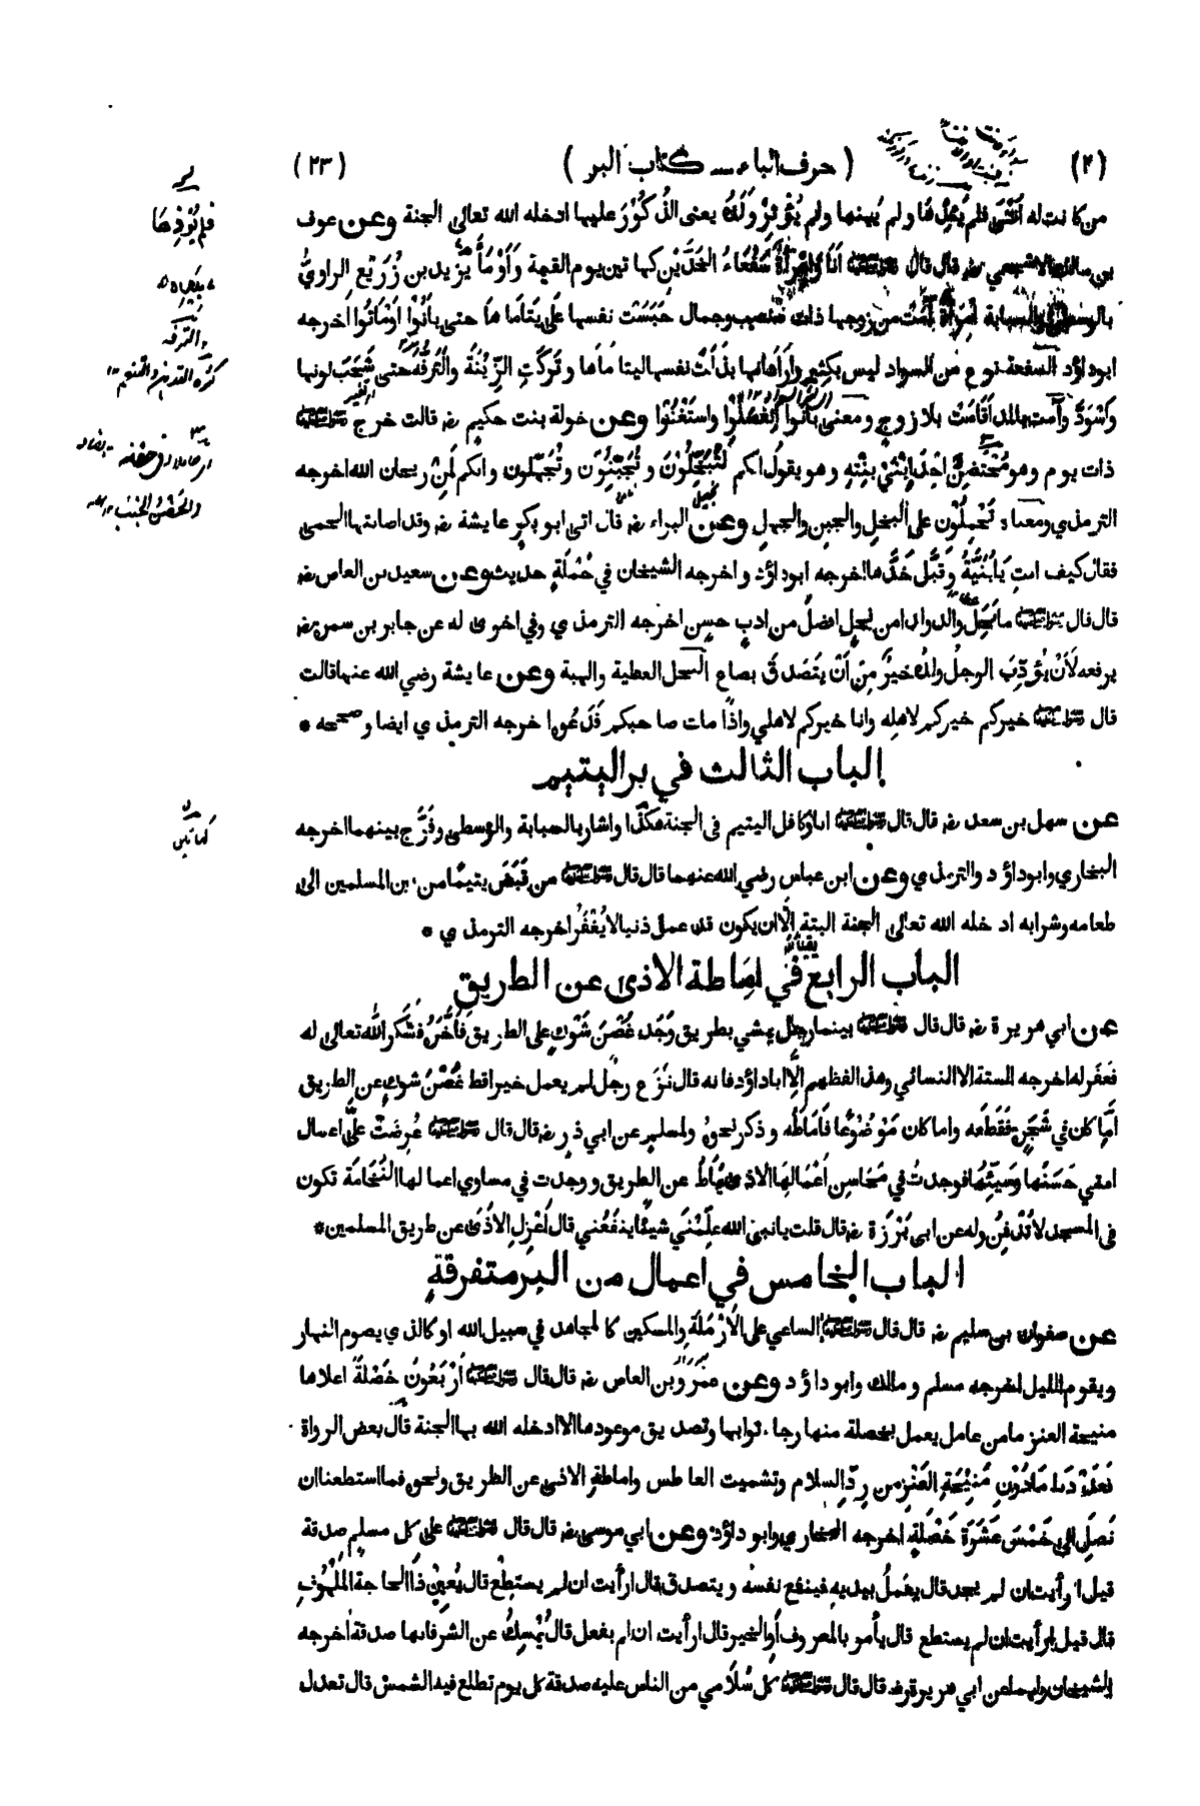 (٢) ( حرف الباء — كتاب البر ) (٢٣)
من كانت له أنثى فلم يئدها ولم يهنها ولم يؤثر ولده يعنى الذكور عليها ادخله الله تعالى الجنة وعن عوف
بن مالك الاشجعي رضـ قال قال ﷺ أنا وامرأة سفعاء الخدين كهاتين يوم القيمة وأومأ يزيد بن زريع الراوي
بالوسطى والسبابة امرأة آمت من زوجها ذات منصب وجمال حبست نفسها على يتاماها حتى بانوا او ماتوا اخرجه
ابوداؤد السفعة نوع من السواد ليس بكثير واراد انها بذلت نفسها ليتاماها وتركت الزينة والترفه حتى شحب لونها
واسود وآمت بالمد اقامت بلا زوج ومعنى بانوا انفصلوا واستغنوا وعن خولة بنت حكيم رضـ قالت خرج ﷺ
ذات يوم وهو محتضن احد ابنى بنته وهو يقول انكم لتبخلون وتجبنون وتجهلون وانكم لمن ريحان الله اخرجه
الترمذي ومعناه تحملون على البخل والجبن والجهل وعن البراء رضـ قال اتى ابو بكر عايشة رضـ وقد اصابتها الحمى
فقال كيف انت يا بنية وقبل خدها اخرجه ابوداؤد واخرجه الشيخان في جملة حديث وعن سعيد بن العاص رضـ
قال قال ﷺ ما نحل والد ولدا من نحل افضل من ادب حسن اخرجه الترمذي وفي اخرى له عن جابر بن سمرة رضـ
يرفعه لأن يؤدب الرجل ولده خير من أن يتصدق بصاع النحل العطية والهبة وعن عايشة رضي الله عنها قالت
قال ﷺ خيركم خيركم لاهله وانا خيركم لاهلي واذا مات صاحبكم فدعوه اخرجه الترمذي ايضا وصححه *
الباب الثالث في بر اليتيم
عن سهل بن سعد رضـ قال قال ﷺ انا وكافل اليتيم فى الجنة هكذا واشار بالسبابة والوسطى وفرّج بينهما اخرجه
البخاري وابوداؤد والترمذي وعن ابن عباس رضي الله عنهما قال قال ﷺ من قبض يتيما من بين المسلمين الى
طعامه وشرابه ادخله الله تعالى الجنة البتة إلا ان يكون قد عمل ذنبا لا يغفر اخرجه الترمذي *
الباب الرابع في اماطة الاذى عن الطريق
عن ابي هريرة رضـ قال قال ﷺ بينما رجل يمشي بطريق وجد غصن شوك على الطريق فأخره فشكر الله تعالى له
فغفر له اخرجه الستة الا النسائي وهذا لفظهم إلا اباداؤد فانه قال نزع رجل لم يعمل خيرا قط غصن شوك عن الطريق
إما كان في شجر فقطعه واما كان موضوعا فاماطه وذكر نحوه ولمسلم عن ابي ذر رضـ قال قال ﷺ عرضت علي اعمال
امتي حسنها وسيئها فوجدت في محاسن أعمالها الاذى يماط عن الطريق ووجدت في مساوي اعمالها النخامة تكون
فى المسجد لا تدفن وله عن ابى برزة رضـ قال قلت يا نبي الله علمني شيئا ينفعني قال اعزل الاذى عن طريق المسلمين *
الباب الخامس في اعمال من البر متفرقة
عن صفوان بن سليم رضـ قال قال ﷺ الساعي على الأرملة والمسكين كالمجاهد في سبيل الله او كالذي يصوم النهار
ويقوم الليل اخرجه مسلم ومالك وابو داؤد وعن عمرو بن العاص رضـ قال قال ﷺ أربعون خصلة اعلاها
منيحة العنز ما من عامل يعمل بخصلة منها رجاء ثوابها وتصديق موعودها الا ادخله الله بها الجنة قال بعض الرواة
فعددنا ما دون منيحة العنز من رد السلام وتشميت العاطس واماطة الاذى عن الطريق ونحوه فما استطعنا ان
نصل الى خمس عشرة خصلة اخرجه البخاري وابو داؤد وعن ابي موسى رضـ قال قال ﷺ على كل مسلم صدقة
قيل أرأيت ان لم يجد قال يعمل بيديه فينفع نفسه ويتصدق قال ارأيت ان لم يستطع قال يعين ذا الحاجة الملهوف
قال قيل ارأيت ان لم يستطع قال يأمر بالمعروف أو الخير قال ارأيت ان لم يفعل قال يمسك عن الشر فانها صدقة اخرجه
الشيخان ولهما عن ابي هريرة رضـ قال قال ﷺ كل سلامى من الناس عليه صدقة كل يوم تطلع فيه الشمس قال تعدل
فلم يؤذها
والترفه
والحضن الجنب